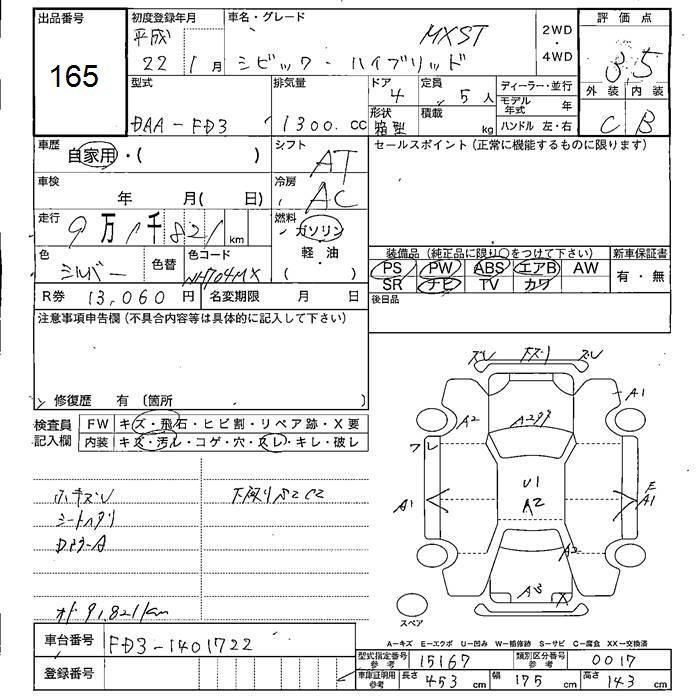 出品番号 初度登録年月 車名・グレード 評価点
165 平成 22 1月 シビック・ハイブリッド MXST 2WD・4WD 3.5
型式 排気量 ドア 定員 ディーラー・並行 外装 内装
DAA-FD3 1300 cc 4 5人 モデル年式 年 C B
形状 箱型 積載 kg ハンドル 左・右
車歴 自家用・( ) シフト AT セールスポイント(正常に機能するものに限ります)
車検 年 月( 日) 冷房 AC
走行 9万1千821 km 燃料 ガソリン・軽・油 ( )
色 シルバー 色替 色コード NH704MX
装備品(純正品に限り○をつけて下さい) 新車保証書
PS PW ABS エアB AW 有・無
SR ナビ TV カワ
R券 13,060円 名変期限 月 日 後日品
注意事項申告欄(不具合内容等は具体的に記入して下さい)
修復歴 有〔箇所
検査員記入欄 FW キズ・飛石・ヒビ割・リペア跡・X要
内装 キズ・汚レ・コゲ・穴・スレ・キレ・破レ
シートヘタリ
91,821km
A1
A2
フレ
U1
A1 A2 A1
A2
A3 X
スペア
A-キズ E-エクボ U-凹み W-補修跡 S-サビ C-腐食 XX-交換済
車台番号 FD3-1401722
登録番号
型式指定番号参考 15167 類別区分番号参考 0017
車庫証明用参考 長さ 453 cm 幅 175 cm 高さ 143 cm